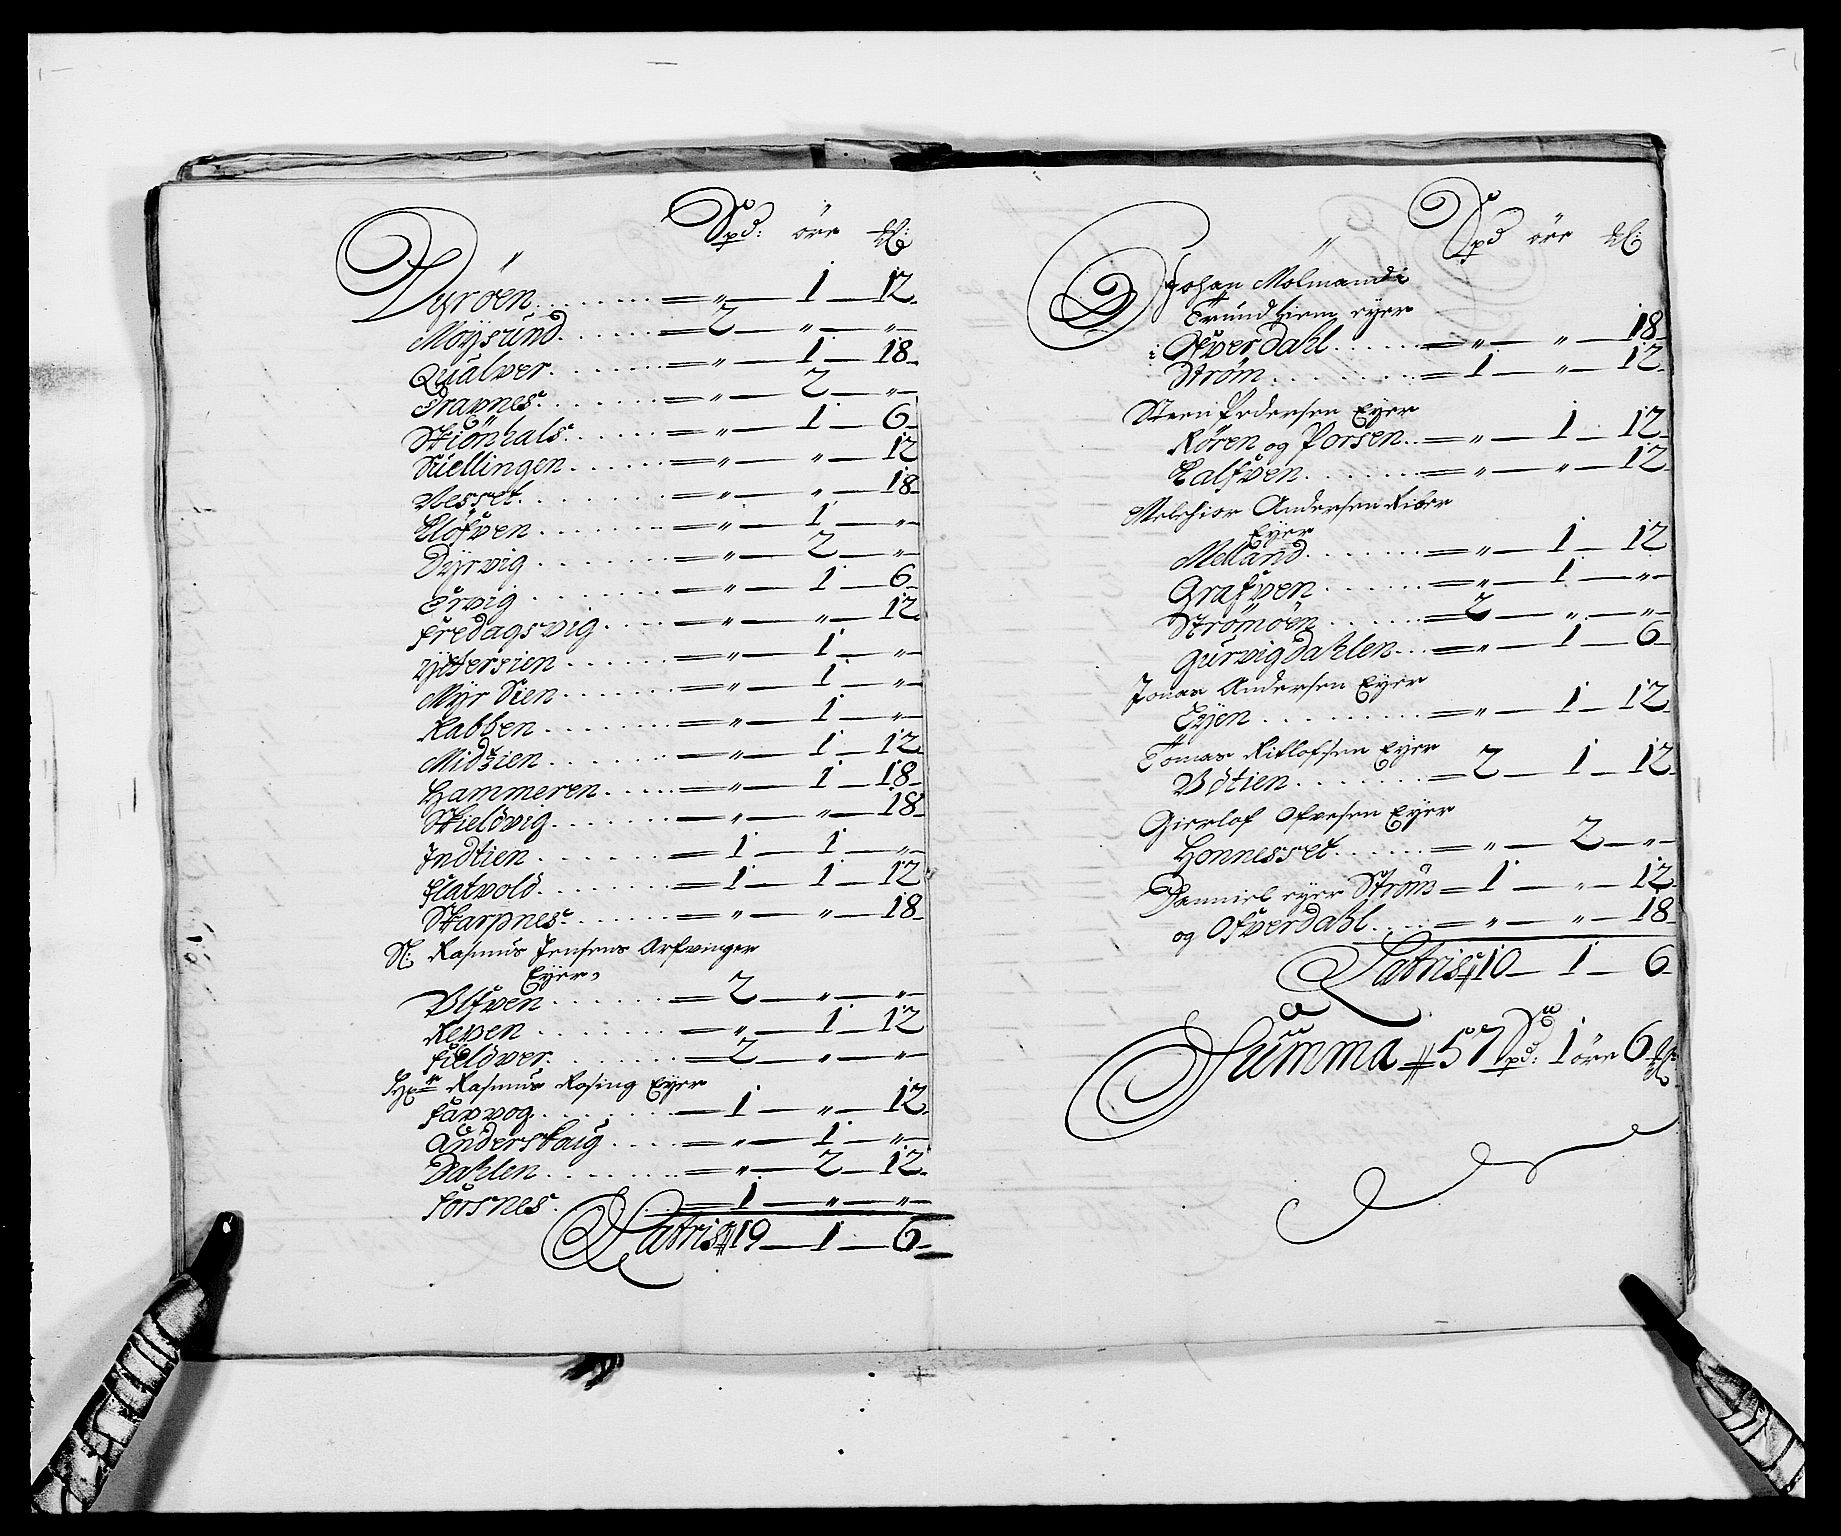 Spd: öre ℔:
Dyröen . . . . . . = „ — 1 — 12
Moÿsund . . . . . = 2 — „ — „
Qualver . . . . . . = „ — 1 — 18
Dravnes . . . . . = „ — 2 — „
Skiönhals . . . . . = „ — 1 — 6
Kiellingen . . . . . = „ — „ — 12
Vesset . . . . . . = „ — „ — 18
Klöfven . . . . . . = „ — 1 — „
Dÿrvig . . . . . . = „ — 2 — „
Ervig . . . . . . = „ — 1 — 6
Fredagsvig . . . . = „ — „ — 12
Yttersien . . . . . = „ — 1 — „
Mÿr Sien . . . . . = „ — 1 — „
Kabben . . . . . . = „ — 1 — „
Midsien . . . . . . = „ — 1 — 12
Hammeren . . . . . = „ — 1 — 18
Skieldvig . . . . . = „ — „ — 18
Indtien . . . . . . = 1 — 1 — „
Flatvold . . . . . = 1 — 1 — 12
Skarpnes . . . . . = „ — „ — 18
Sl: Rasmus Jensens Arfvinger
Eyer
Ulfven . . . . . . = 2 — „ — „
Reven . . . . . . = „ — 1 — 12
Fieldver . . . . . = 2 — „ — „
Rasmus Rosing Eyer
Farvog . . . . . — 1 — „ — 12
Anderskaug . . . . = „ — 1 — „
Dahlen . . . . . . = „ — 2 — 12
Forsnes . . . . . = 1 — „ — „
Latris 19 — 1 — 6
Spd öre ℔:
Johan Molmandi
Trundhiem eyer
i Ofverdahl . . . . . = „ — „ — 18
Ström . . . . . . = 1 — „ — 12
Steen Pedersen Eyer
Rören og Porsen . . = „ — 1 — 12
Kalfven . . . . . . = „ — „ — 12
Melchior Andersen Riber
Eyer
Melland . . . . . = „ — 1 — 12
Grafven . . . . . = „ — 1 — „
Strömöen . . . . . = 2 — „ — „
Gurvigdahlen . . . = „ — 1 — 6
Jonas Andersen Eyer
Eyen . . . . . . = „ — 1 — 12
Tomas Eyer
Vdtien . . . . . . = 2 — 1 — 12
Gierlof Ofvesen Eyer
Honnesset . . . . . = „ — 2 — „
Danniel eyer Ström = 1 — „ — 12
og Ofverdahl . . . . = „ — „ — 18
Latris 10 — 1 — 6
Summa 57 Spd: 1 öre 6 ℔